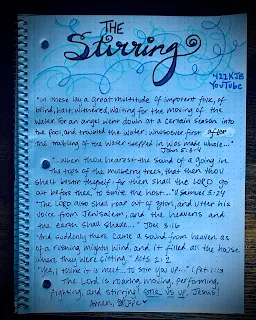 THE
Stirring
4221KJB
YouTube
"In these lay a great multitude of impotent folk, of
blind, halt, withered, waiting for the moving of the
water. For an angel went down at a certain season into
the pool, and troubled the water: whosoever first after
the troubling of the water stepped in was made whole..."
John 5:3-4
"... when thou hearest the sound of a going in
the tops of the mulberry trees, that then thou
shalt bestir thyself: for then shall the LORD go
out before thee, to smite the host..." II Samuel 5:24
"The LORD also shall roar out of Zion, and utter his
voice from Jerusalem; and the heavens and
the earth shall shake..." Joel 3:16
"And suddenly there came a sound from heaven as
of a rushing mighty wind, and it filled all the house
where they were sitting." Acts 2:2
"Yea, I think it meet... to stir you up..." 1:13
The Lord is roaring, moving, performing,
fighting, and stirring some us up, Jesus!
Amen,